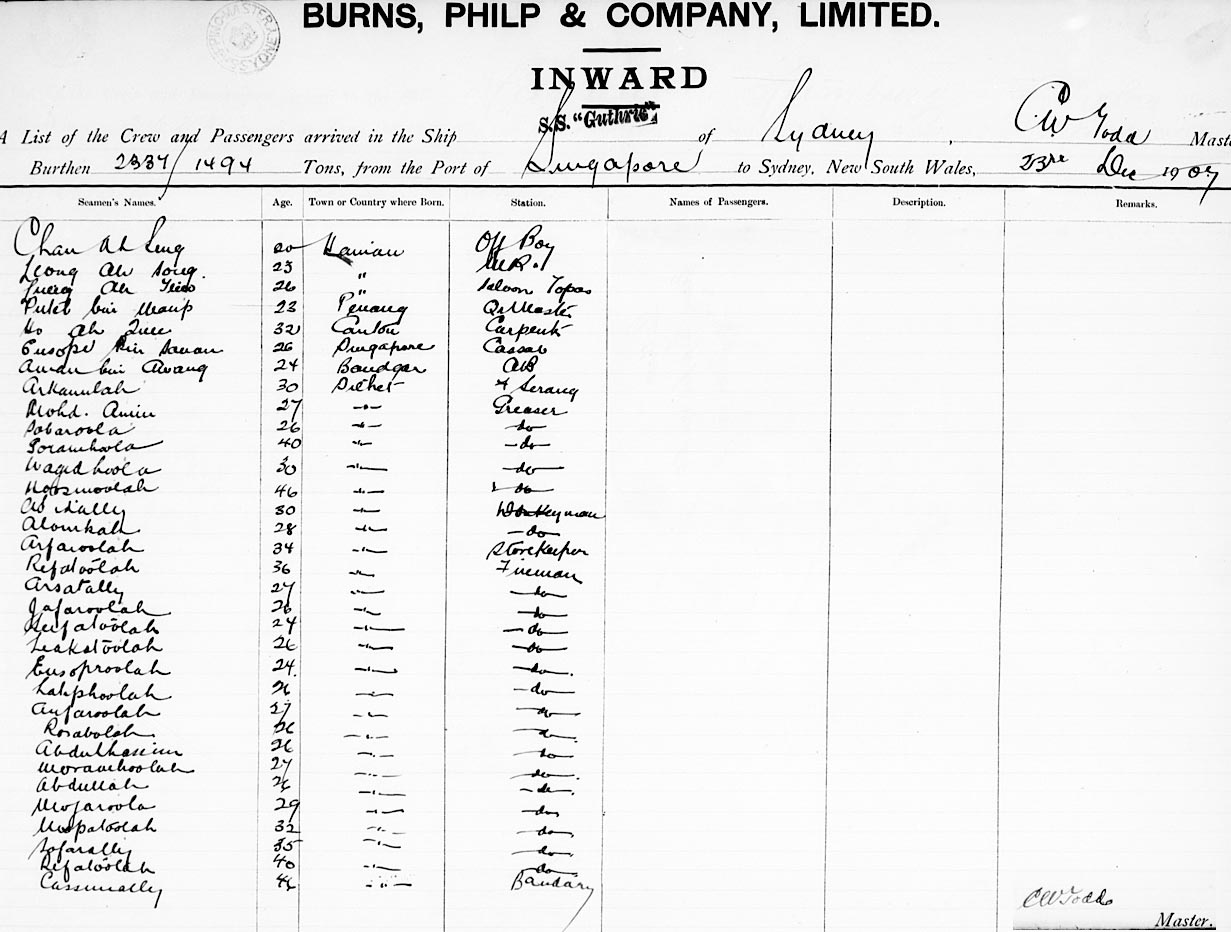 SHIPPING MASTER SYDNEY
BURNS, PHILP & COMPANY, LIMITED.
INWARD
A List of the Crew and Passengers arrived in the Ship S.S. "Guthrie" of Sydney, CW Todd Mast
Burthen 2337/1494 Tons, from the Port of Singapore to Sydney, New South Wales, 23re Dec 1907
Seamen's Names. Age. Town or Country where Born. Station. Names of Passengers. Description. Remarks.
Chan Ah Seng 20 Hainan Off Boy
Leong Ah Song. 23 " M.R.
Ah 26 " Saloon Topas
bin 23 Penang Qr Master
Ho Ah 32 Canton Carpentr
Eusope bin 26 Singapore Cassab
Aman bin Awang 24 AB
Arkanulah 30 Silhet Serang
Mohd. Amin 27 -"- Greaser
Sabaroola 26 -"- -do-
Soramhoola 40 -"- -do-
Wagidhoola 30 -"- -do-
46 -"- -do-
30 -"- Donkeyman
Alomkah 28 -"- -do-
Arfaroolah 34 -"- Storekeeper
Refatoolah 36 -"- Fireman
Arsatally 27 -"- -do-
Jafaroolah 26 -"- -do-
Keifatoolah 24 -"- -do-
Leakatoolah 26 -"- -do-
Eusoproolah 24. -"- -do-.
Lahphoolah 26 -"- -do-
Anfaroolah 27 -"- -do-
Rosabolah 26 -"- -do-
Abdulhasim 26 -"- -do-
Moramhoolah 27 -"- -do-
Abdullah 26 -"- -do-.
Mojaroola 29 -"- -do-
32 -"- -do-
Sofarally 35 -"- -do-
Refatoolah 40 -"- -do-
Cassimally 46 -"- Bandary
CW Todd
Master.